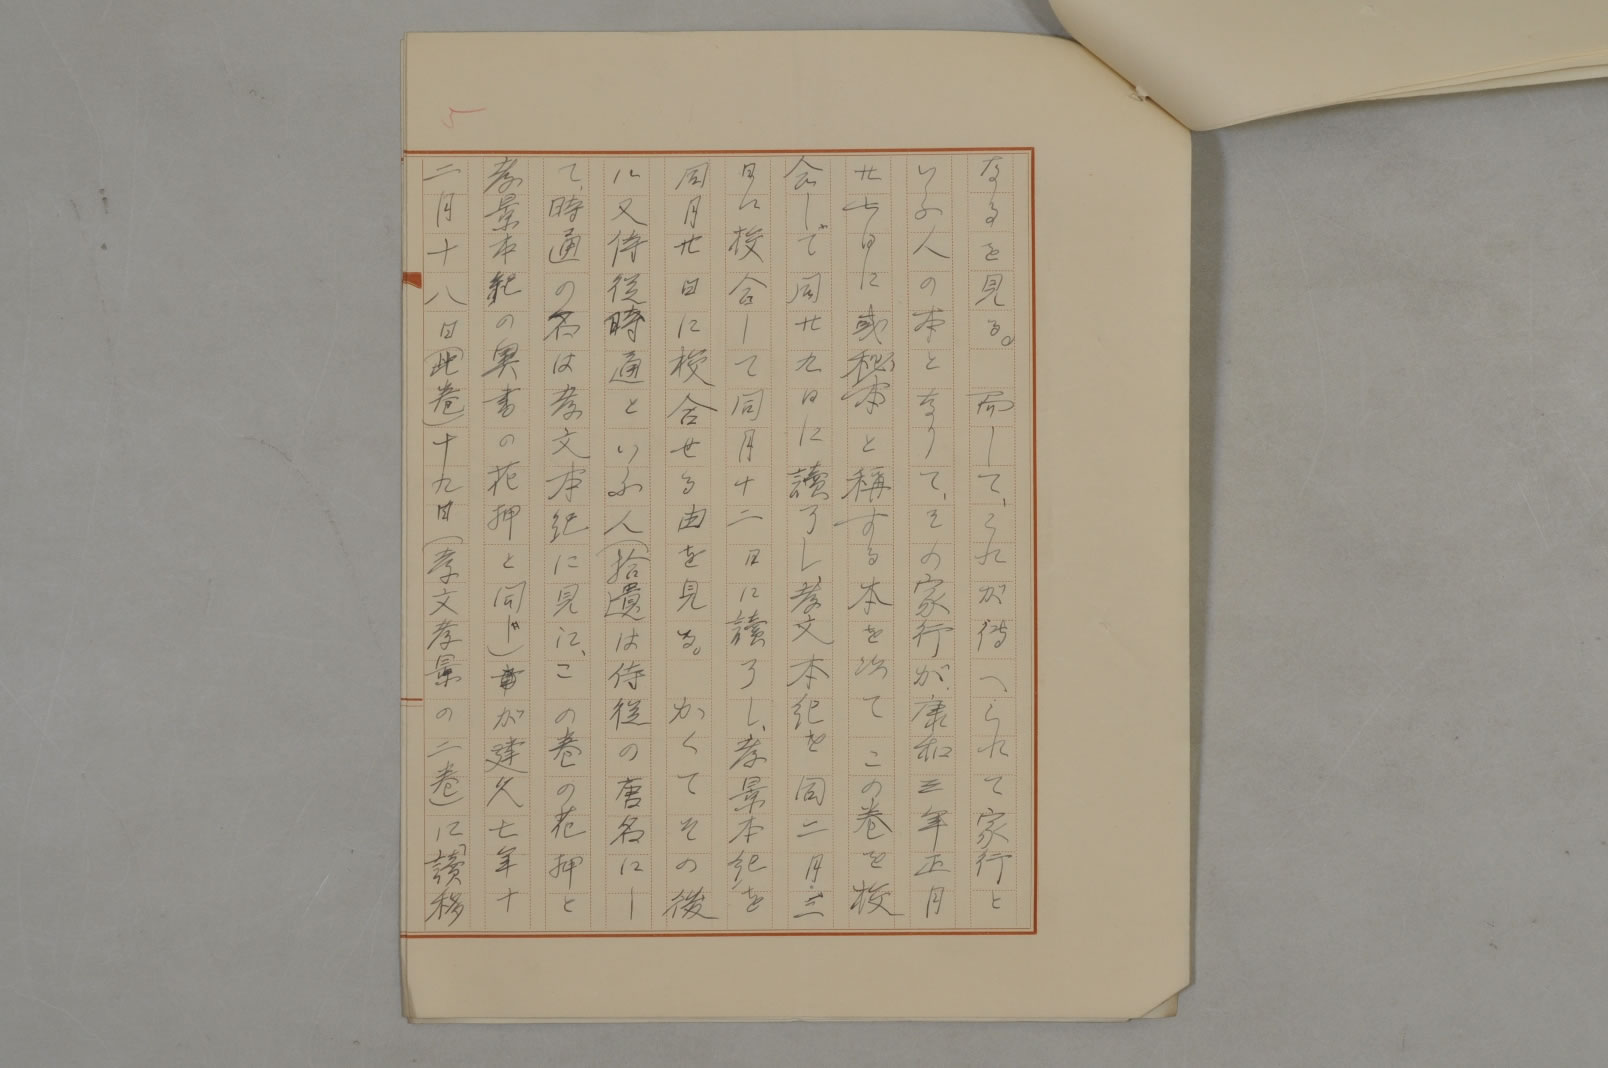 なるを見る。　而して、これが傳へられて家行と
いふ人の本となりて、その家行が、康和三年正月
廿七日に或秘本と稱する本を以て この巻を校
合して同廿九日に讀了し、孝文本紀を同二月三
日に校合して同月十二日に讀了し、孝景本紀を
同月廿日に校合せる由を見る。　かくてその後
に又侍從時通といふ人(拾遺は侍從の唐名にし
て、時通の名は孝文本紀に見江、この巻の花押と
孝景本紀の奥書の花押と同じ)が建久七年十
二月十八日(此巻)十九日(孝文孝景の二巻)に讀移